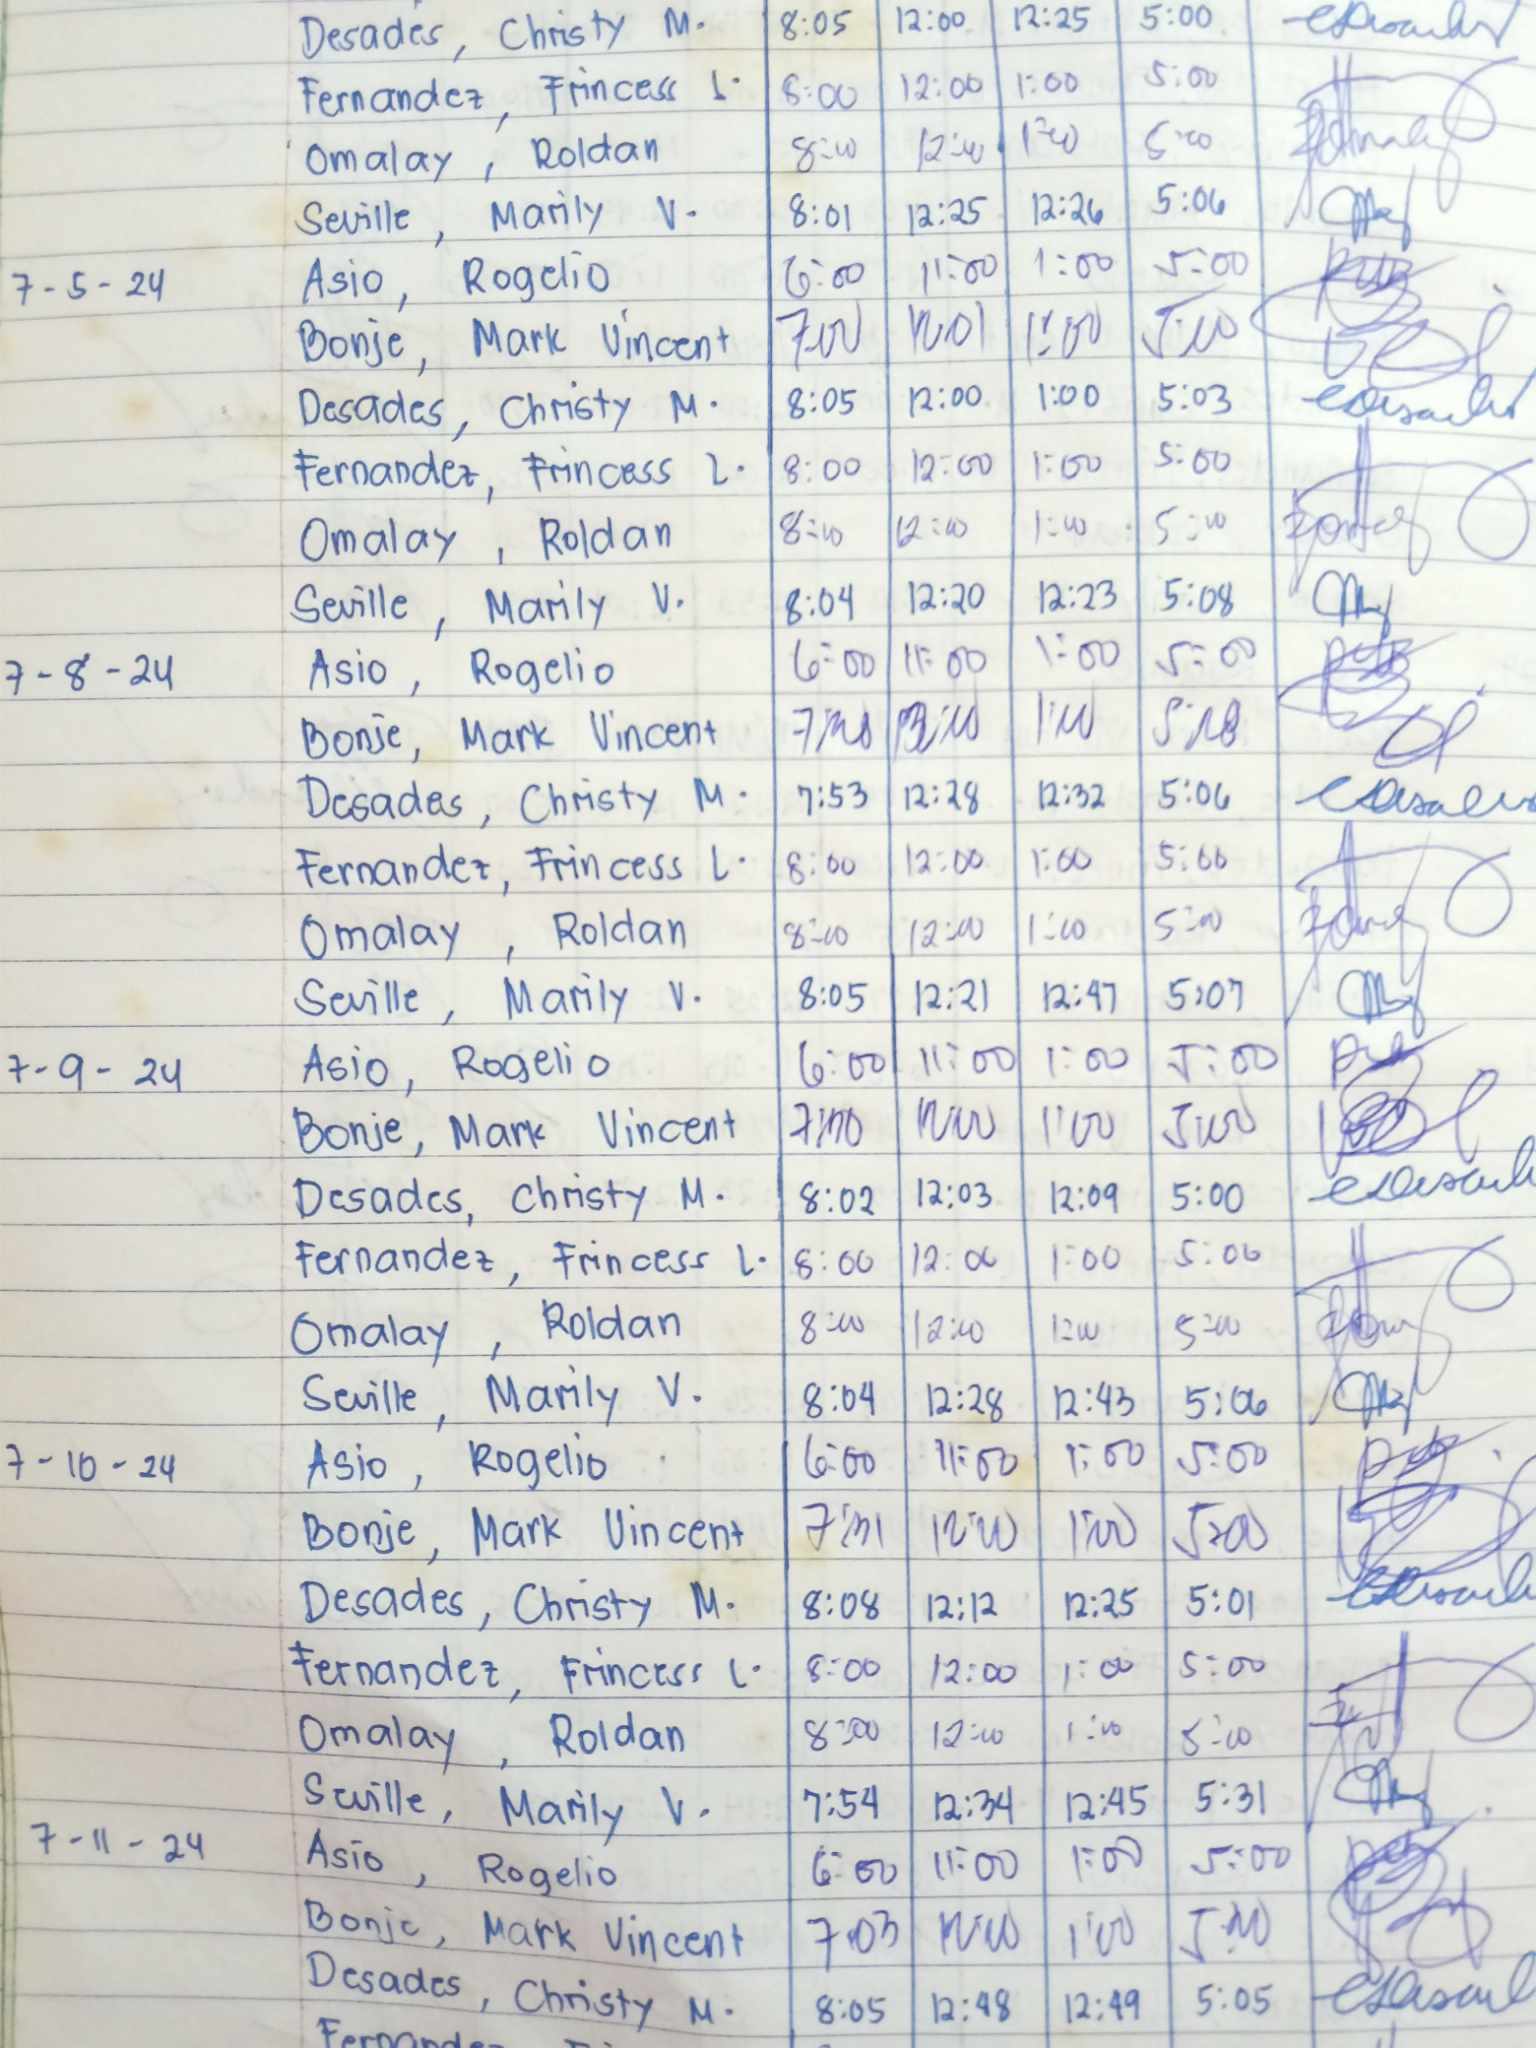 Desades, Christy M. 8:05 12:00 12:25 5:00
Fernandez, Frincess L. 8:00 12:00 1:00 5:00
Omalay, Roldan 8:00 12:00 1:00 5:00
Seville, Marily V. 8:01 12:25 12:26 5:06
7-5-24 Asio, Rogelio 6:00 11:00 1:00 5:00
Bonje, Mark Vincent 7:00 1:00 5:00
Desades, Christy M. 8:05 12:00 1:00 5:03
Fernandez, Frincess L. 8:00 12:00 1:00 5:00
Omalay, Roldan 8:00 12:00 1:00 5:00
Seville, Marily V. 8:04 12:20 12:23 5:08
7-8-24 Asio, Rogelio 6:00 11:00 1:00 5:00
Bonje, Mark Vincent 1:00
Desades, Christy M. 7:53 12:28 12:32 5:06
Fernandez, Frincess L. 8:00 12:00 1:00 5:00
Omalay, Roldan 8:00 12:00 1:00 5:00
Seville, Marily V. 8:05 12:21 12:47 5:07
7-9-24 Asio, Rogelio 6:00 11:00 1:00 5:00
Bonje, Mark Vincent 12:00 1:00 5:00
Desades, Christy M. 8:02 12:03 12:09 5:00
Fernandez, Frincess L. 8:00 12:00 1:00 5:00
Omalay, Roldan 8:00 12:00 1:00 5:00
Seville, Marily V. 8:04 12:28 12:43 5:06
7-10-24 Asio, Rogelio 6:00 11:00 1:00 5:00
Bonje, Mark Vincent 12:00 1:00 5:00
Desades, Christy M. 8:08 12:12 12:25 5:01
Fernandez, Frincess L. 8:00 12:00 1:00 5:00
Omalay, Roldan 8:00 12:00 1:00 5:00
Seville, Marily V. 7:54 12:34 12:45 5:31
7-11-24 Asio, Rogelio 6:00 11:00 1:00 5:00
Bonje, Mark Vincent 7:03 12:00 1:00
Desades, Christy M. 8:05 12:48 12:49 5:05
Fernandez